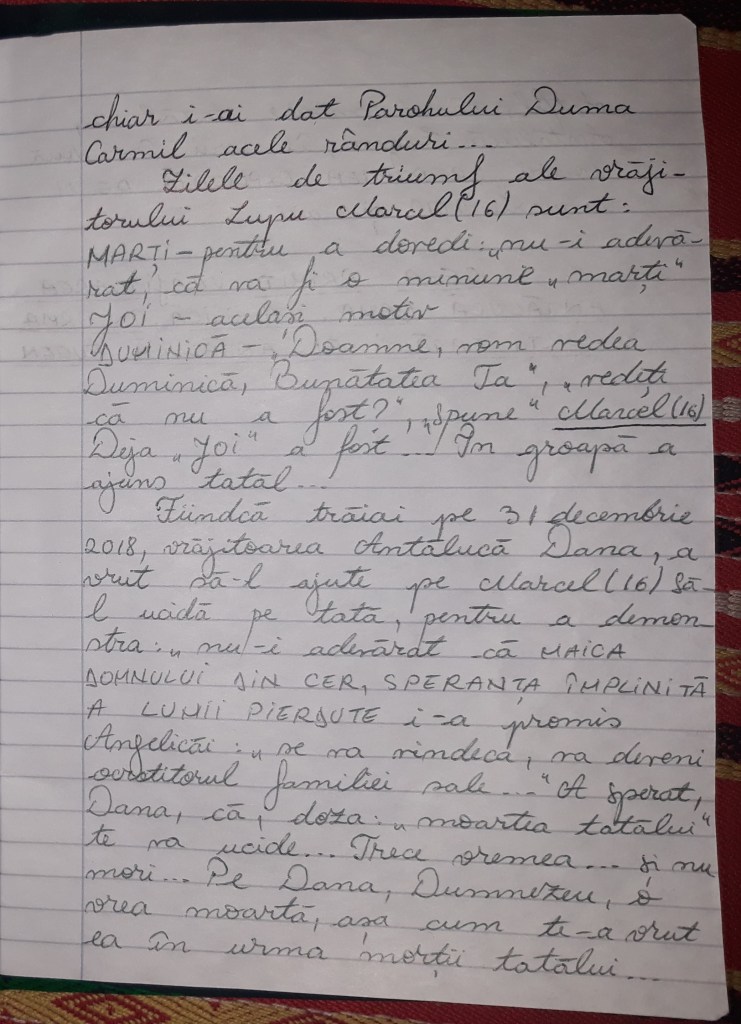 chiar i-ai dat Parohului Duma
Carmil acele rânduri...
Zilele de triumf ale vrăji-
torului Lupu Marcel (16) sunt:
MARȚI - pentru a dovedi: „nu-i adevă-
rat, că va fi o minune „marți“
JOI - același motiv
DUMINICĂ - „Doamne, vom vedea
Duminică, Bunătatea Ta“, „vedeți
că nu a fost?“, „spune“ Marcel (16)
Deja „Joi“ a fost... În groapă a
ajuns tatăl...
Fiindcă trăiai pe 31 decembrie
2018, vrăjitoarea Antălucă Dana, a
vrut să-l ajute pe Marcel (16) să-
l ucidă pe tata, pentru a demon-
stra: „nu-i adevărat că MAICA
DOMNULUI DIN CER, SPERANȚA ÎMPLINITĂ
A LUMII PIERDUTE i-a promis
Angelicăi: „se va vindeca, va deveni
ocrotitorul familiei sale...“ A sperat,
Dana, că, doza: „moartea tatălui“
te va ucide... Trece vremea... și nu
mori... Pe Dana, Dumnezeu, o
vrea moartă, așa cum te-a vrut
ea în urma morții tatălui...